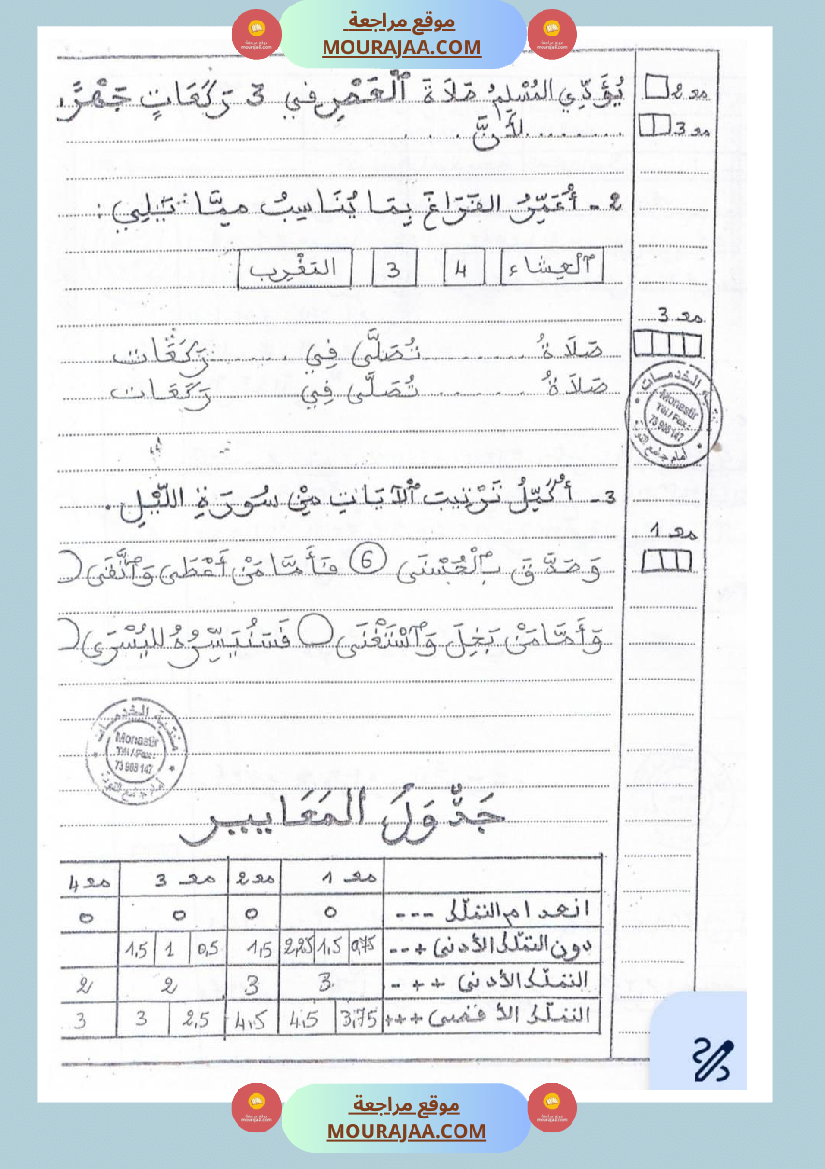 موقع مراجعة
MOURAJAA.COM
يُؤَدِّي المُسْلِمُ صَلَاةَ ٱلْعَصْرِ في 3 رَكَعَاتٍ جَهْرًا
مع 2
......... لِأَنَّ . . .
مع 3
2 - أُعَمِّرُ الفَرَاغَ بِمَا يُنَاسِبُ مِمَّا يَلِي :
ٱلْعِشَاء 4 3 المَغْرِب
مع 3
صَلَاةُ ......... تُصَلَّى فِي ...... رَكَعَات
صَلَاةُ ......... تُصَلَّى فِي رَكَعَات
الخدمات
Monastir
Tél / Fax :
73 908 147
3 - أُكَمِّلُ تَرْتِيبَ ٱلْآيَاتِ مِنْ سُورَةِ اللَّيْلِ .
مع 1
وَصَدَّقَ بِٱلْحُسْنَى 6 فَأَمَّا مَنْ أَعْطَى وَٱتَّقَى
وَأَمَّا مَنْ بَخِلَ وَٱسْتَغْنَى فَسَنُيَسِّرُهُ لليُسْرَى
الخدمات
Monastir
Tél / Fax :
73 908 147
جَدْوَلُ المَعَايير
مع 1 مع 2 مع 3 مع 4
انعدام التملك --- 0 0 0 0
دون التملك الأدنى +-- 0,75 1,5 2,25 1,5 0,5 1 1,5
التملك الأدنى ++- 3 3 2 2
التملك الأقصى +++ 3,75 4,5 4,5 2,5 3 3
موقع مراجعة
MOURAJAA.COM